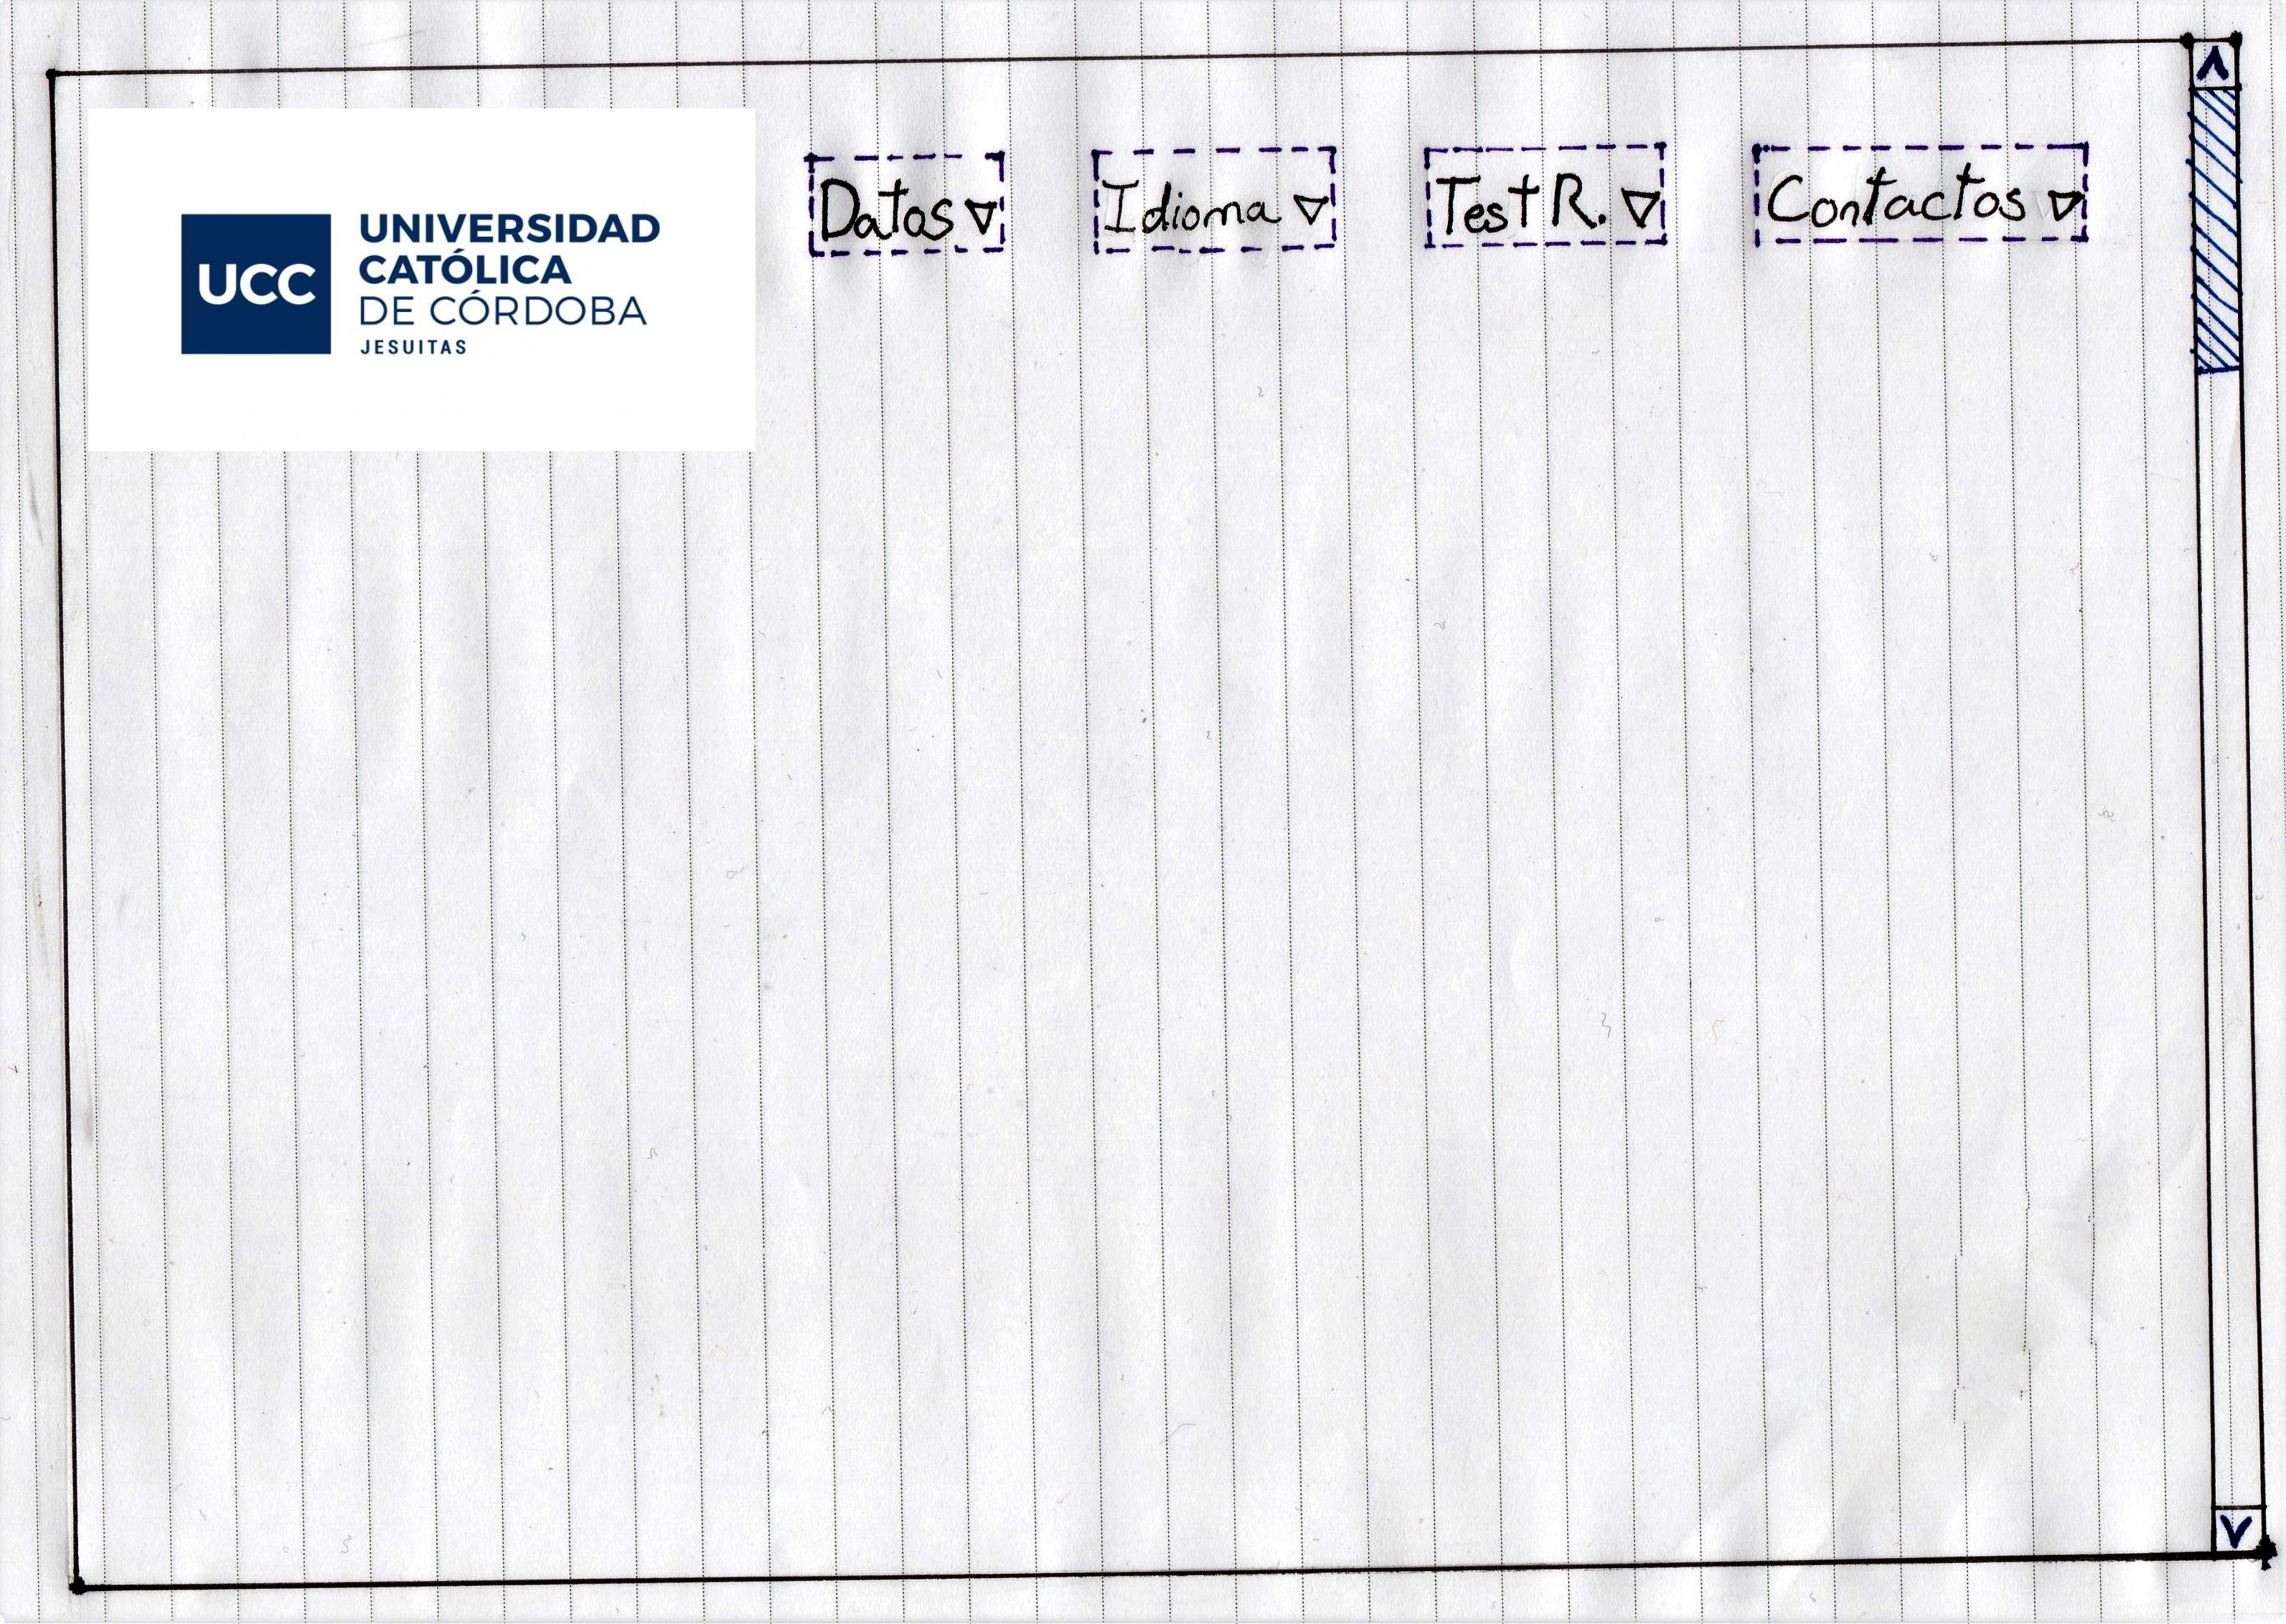 UCC
UNIVERSIDAD
CATÓLICA
DE CÓRDOBA
JESUITAS
Datos
Idioma
Test R.
Contactos